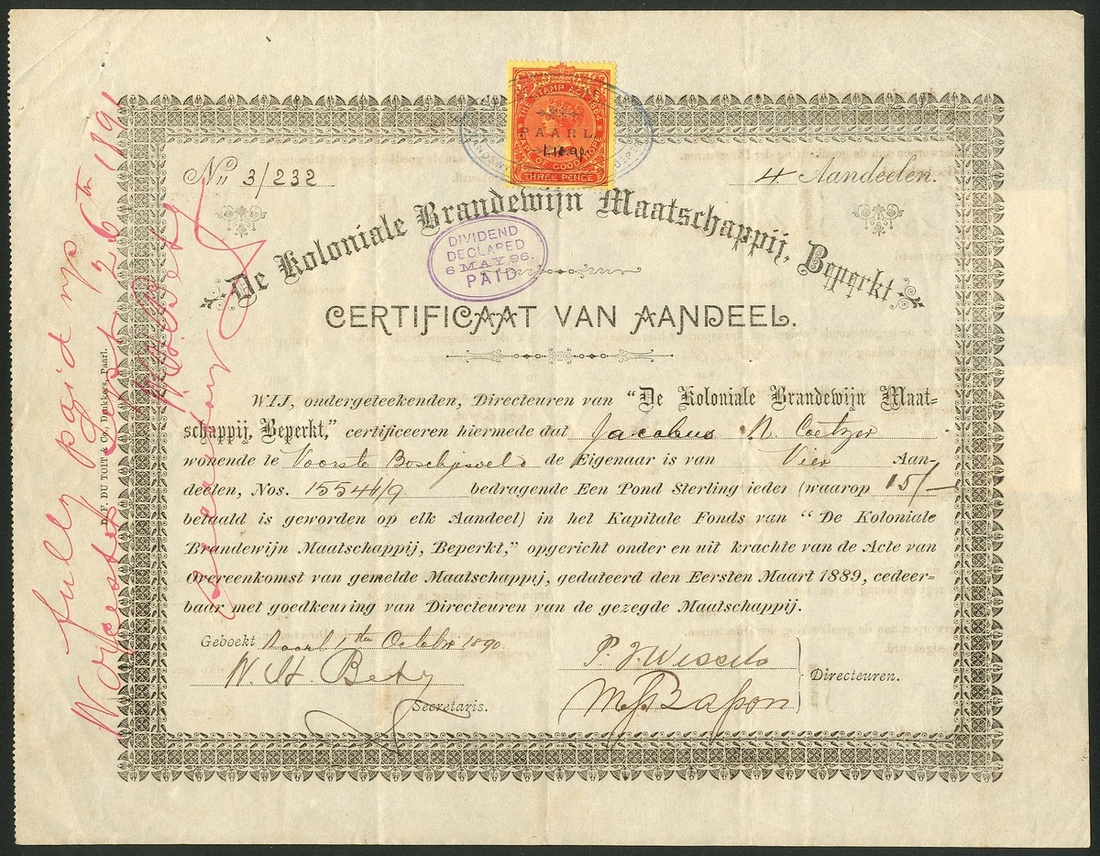 THE STAMP ACT 1864
PAARL
1.10.90.
CAPE OF GOOD HOPE
THREE PENCE
No. 3/232
4 Aandeelen.
De Koloniale Brandewijn Maatschappij, Beperkt.
DIVIDEND
DECLARED
6 MAY 96.
PAID
CERTIFICAAT VAN AANDEEL.
WIJ, ondergeteekenden, Directeuren van "De Koloniale Brandewijn Maat-
schappij, Beperkt," certificeeren hiermede dat Jacobus N. Coetzer
wonende te Voorste Boschjesveld de Eigenaar is van Vier Aan-
deelen, Nos. 15546/9 bedragende Een Pond Sterling ieder (waarop 15/-
betaald is geworden op elk Aandeel) in het Kapitale Fonds van "De Koloniale
Brandewijn Maatschappij, Beperkt," opgericht onder en uit krachte van de Acte van
Overeenkomst van gemelde Maatschappij, gedateerd den Eersten Maart 1889, cedeer-
baar met goedkeuring van Directeuren van de gezegde Maatschappij.
Geboekt Paarl 1sten October 1890.
W. H. Betz
Secretaris.
P. J. Wessels
Directeuren.
D. F. DU TOIT & Co., Drukkers, Paarl.
fully paid up
Worcester Sept 26th 1891
W H Betz
Secretary